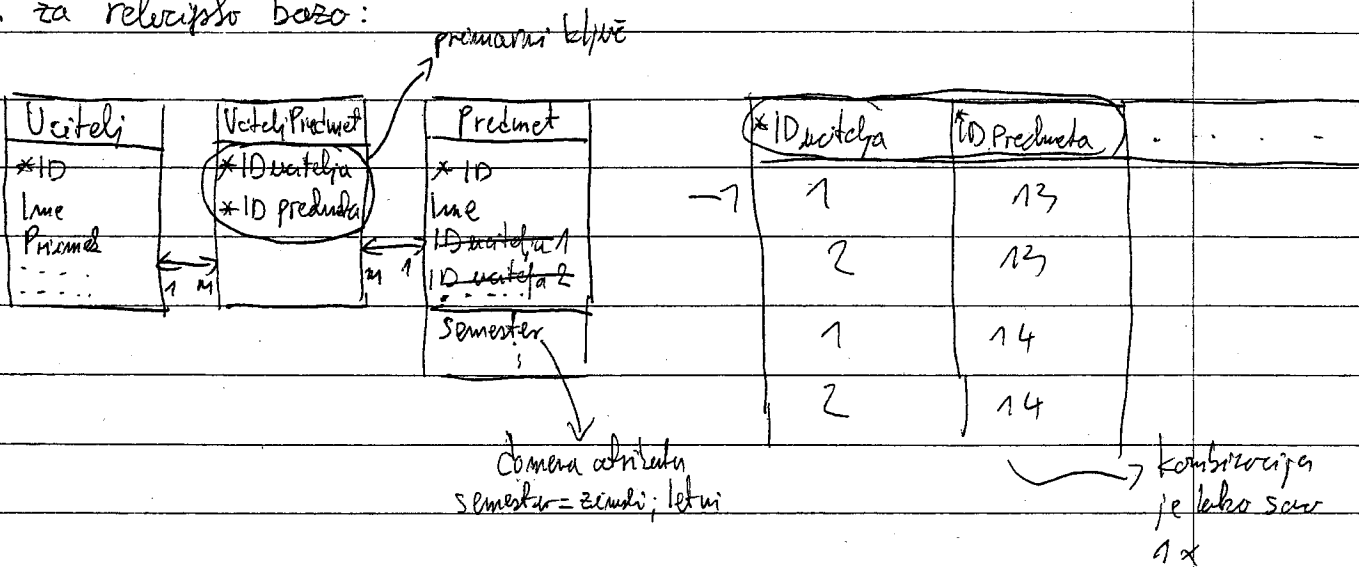 . za relacijsko bazo:
primarni ključ
Ucitelj
*ID
Ime
Priimek
.....
1 M
UciteljPredmet
*ID ucitelja
*ID predmeta
M 1
Predmet
*ID
Ime
ID ucitelja 1
ID ucitelja 2
.....
Semester
domena atributa
semester = zimski; letni
*ID ucitelja *ID Predmeta . . . .
1 13
2 13
1 14
2 14
kombinacija
je lahko samo
1x